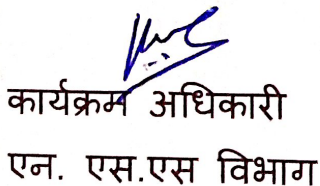 कार्यक्रम अधिकारी
एन. एस.एस विभाग